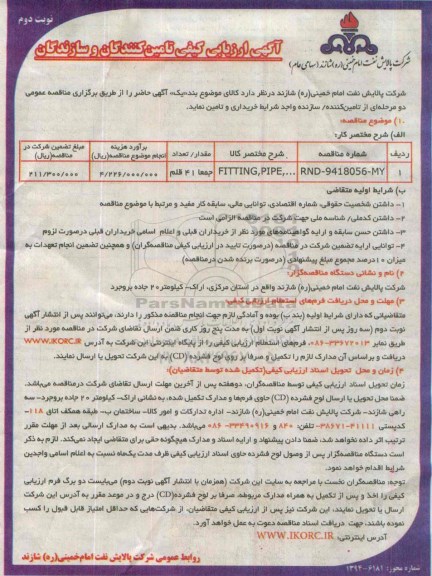 نوبت دوم
آگهی ارزیابی کیفی تامین کنندگان و سازندگان
شرکت پالایش نفت امام خمینی(ره) شازند (سهامی عام)
شرکت پالایش نفت امام خمینی(ره) شازند درنظر دارد کالای موضوع بند«یک» آگهی حاضر را از طریق برگزاری مناقصه عمومی
دو مرحله‌ای از تامین‌کننده/ سازنده واجد شرایط خریداری و تامین نماید.
۱) موضوع مناقصه:
الف) شرح مختصر کار:
ردیف شماره مناقصه شرح مختصر کالا مقدار/ تعداد برآورد هزینه انجام موضوع مناقصه(ریال) مبلغ تضمین شرکت در مناقصه(ریال)
۱ RND-9418056-MY FITTING,PIPE,... جمعا ۴۱ قلم ۴/۲۲۶/۰۰۰/۰۰۰ ۲۱۱/۳۰۰/۰۰۰
ب) شرایط اولیه متقاضی
۱- داشتن شخصیت حقوقی، شماره اقتصادی، توانایی مالی، سابقه کار مفید و مرتبط با موضوع مناقصه
۲- داشتن کدملی/ شناسه ملی جهت شرکت در مناقصه الزامی است
۳- داشتن حسن سابقه و ارایه گواهینامه‌های مورد نظر از خریداران قبلی و اعلام اسامی خریداران قبلی درصورت لزوم
۴- توانایی ارایه تضمین شرکت در مناقصه (درصورت تایید در ارزیابی کیفی مناقصه‌گران) و همچنین تضمین انجام تعهدات به
میزان ۱۰درصد مجموع مبلغ پیشنهادی (درصورت برنده شدن درمناقصه)
۲) نام و نشانی دستگاه مناقصه‌گزار:
شرکت پالایش نفت امام خمینی(ره) شازند واقع در استان مرکزی، اراک- کیلومتر۲۰ جاده بروجرد
۳) مهلت و محل دریافت فرم‌های استعلام ارزیابی کیفی:
متقاضیانی که دارای شرایط اولیه (بند ب) بوده و آمادگی لازم جهت انجام مناقصه مذکور را دارند، می‌توانند پس از انتشار آگهی
نوبت دوم (سه روز پس از انتشار آگهی نوبت اول) به مدت پنج روز کاری ضمن ارسال تقاضای شرکت در مناقصه مورد نظر از
طریق نمابر ۳۳۶۷۲۰۱۳-۰۸۶، فرم‌های استعلام ارزیابی کیفی را از پایگاه اینترنتی این شرکت به آدرس WWW.IKORC.IR
دریافت و براساس آن مدارک لازم را تکمیل و صرفا بر روی لوح فشرده (CD) به این شرکت تحویل یا ارسال نمایند.
۴) زمان و محل تحویل اسناد ارزیابی کیفی(تکمیل شده توسط متقاضیان):
زمان تحویل اسناد ارزیابی کیفی توسط مناقصه‌گران، دوهفته پس از آخرین مهلت ارسال تقاضای شرکت درمناقصه می‌باشد.
ضمنا محل تحویل یا ارسال لوح فشرده (CD) حاوی فرم‌ها و مدارک تکمیل شده، به نشانی اراک- کیلومتر ۲۰ جاده بروجرد- سه
راهی شازند- شرکت پالایش نفت امام خمینی(ره) شازند- اداره تدارکات و امور کالا- ساختمان ب- طبقه همکف اتاق ۱۱۸-
کدپستی ۴۱۱۱۱-۳۸۶۷۱- تلفن: ۸۴۰ و ۳۳۴۹۰۹۱۶- ۰۸۶ می‌باشد. بدیهی است به مدارک ارسالی بعد از مهلت مقرر
ترتیب اثر داده نخواهد شد، ضمنا دادن پیشنهاد و ارایه اسناد و مدارک هیچگونه حقی برای متقاضی ایجاد نمی‌کند. لازم به ذکر
است دستگاه مناقصه‌گزار پس از وصول لوح فشرده حاوی اسناد ارزیابی کیفی ظرف مدت یک‌ماه نسبت به اعلام اسامی واجدین
شرایط اقدام خواهد نمود.
توجه: مناقصه‌گران نخست با مراجعه به سایت این شرکت (همزمان با انتشار آگهی نوبت دوم) می‌بایست دو برگ فرم ارزیابی
کیفی را اخذ و پس از تکمیل به همراه مدارک مربوطه، صرفا بر لوح فشرده(CD) درج و در موعد مقرر به آدرس این شرکت
ارسال یا تحویل نمایند، این شرکت نیز پس از ارزیابی کیفی متقاضیان، از شرکت‌هایی که حداقل امتیاز قابل قبول را کسب
نموده باشند، جهت دریافت اسناد مناقصه دعوت به عمل خواهد آورد.
آدرس اینترنتی: WWW.IKORC.IR
روابط عمومی شرکت پالایش نفت امام‌خمینی(ره) شازند
شماره مجوز: ۶۱۸۱-۱۳۹۴